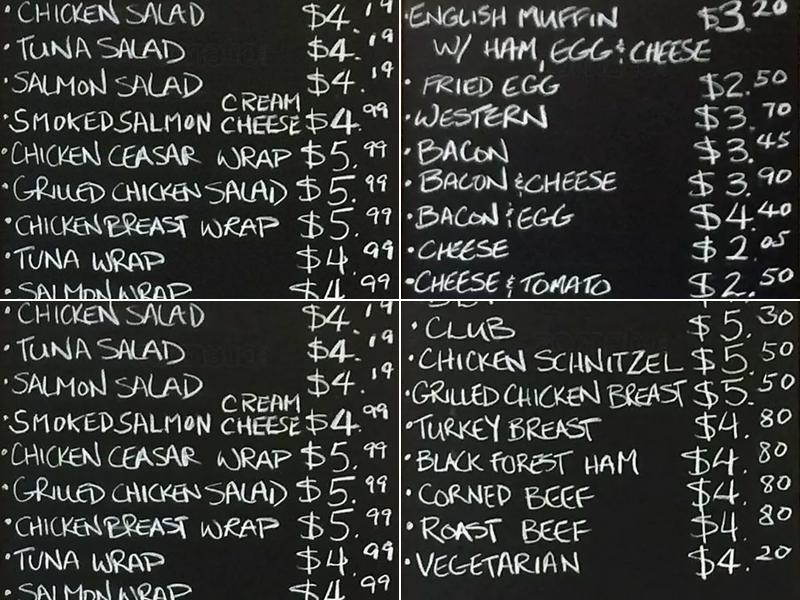 ·CHICKEN SALAD $4.19
·TUNA SALAD $4.19
·SALMON SALAD $4.19
·SMOKED SALMON CREAM CHEESE $4.99
·CHICKEN CEASAR WRAP $5.99
·GRILLED CHICKEN SALAD $5.99
·CHICKEN BREAST WRAP $5.99
·TUNA WRAP $4.99
·SALMON WRAP $4.99
·ENGLISH MUFFIN $3.20
W/ HAM, EGG & CHEESE
·FRIED EGG $2.50
·WESTERN $3.70
·BACON $3.45
·BACON & CHEESE $3.90
·BACON & EGG $4.40
·CHEESE $2.05
·CHEESE & TOMATO $2.50
·CHICKEN SALAD $4.19
·TUNA SALAD $4.19
·SALMON SALAD $4.19
·SMOKED SALMON CREAM CHEESE $4.99
·CHICKEN CEASAR WRAP $5.99
·GRILLED CHICKEN SALAD $5.99
·CHICKEN BREAST WRAP $5.99
·TUNA WRAP $4.99
·SALMON WRAP $4.99
·CLUB $5.30
·CHICKEN SCHNITZEL $5.50
·GRILLED CHICKEN BREAST $5.50
·TURKEY BREAST $4.80
·BLACK FOREST HAM $4.80
·CORNED BEEF $4.80
·ROAST BEEF $4.80
·VEGETARIAN $4.20